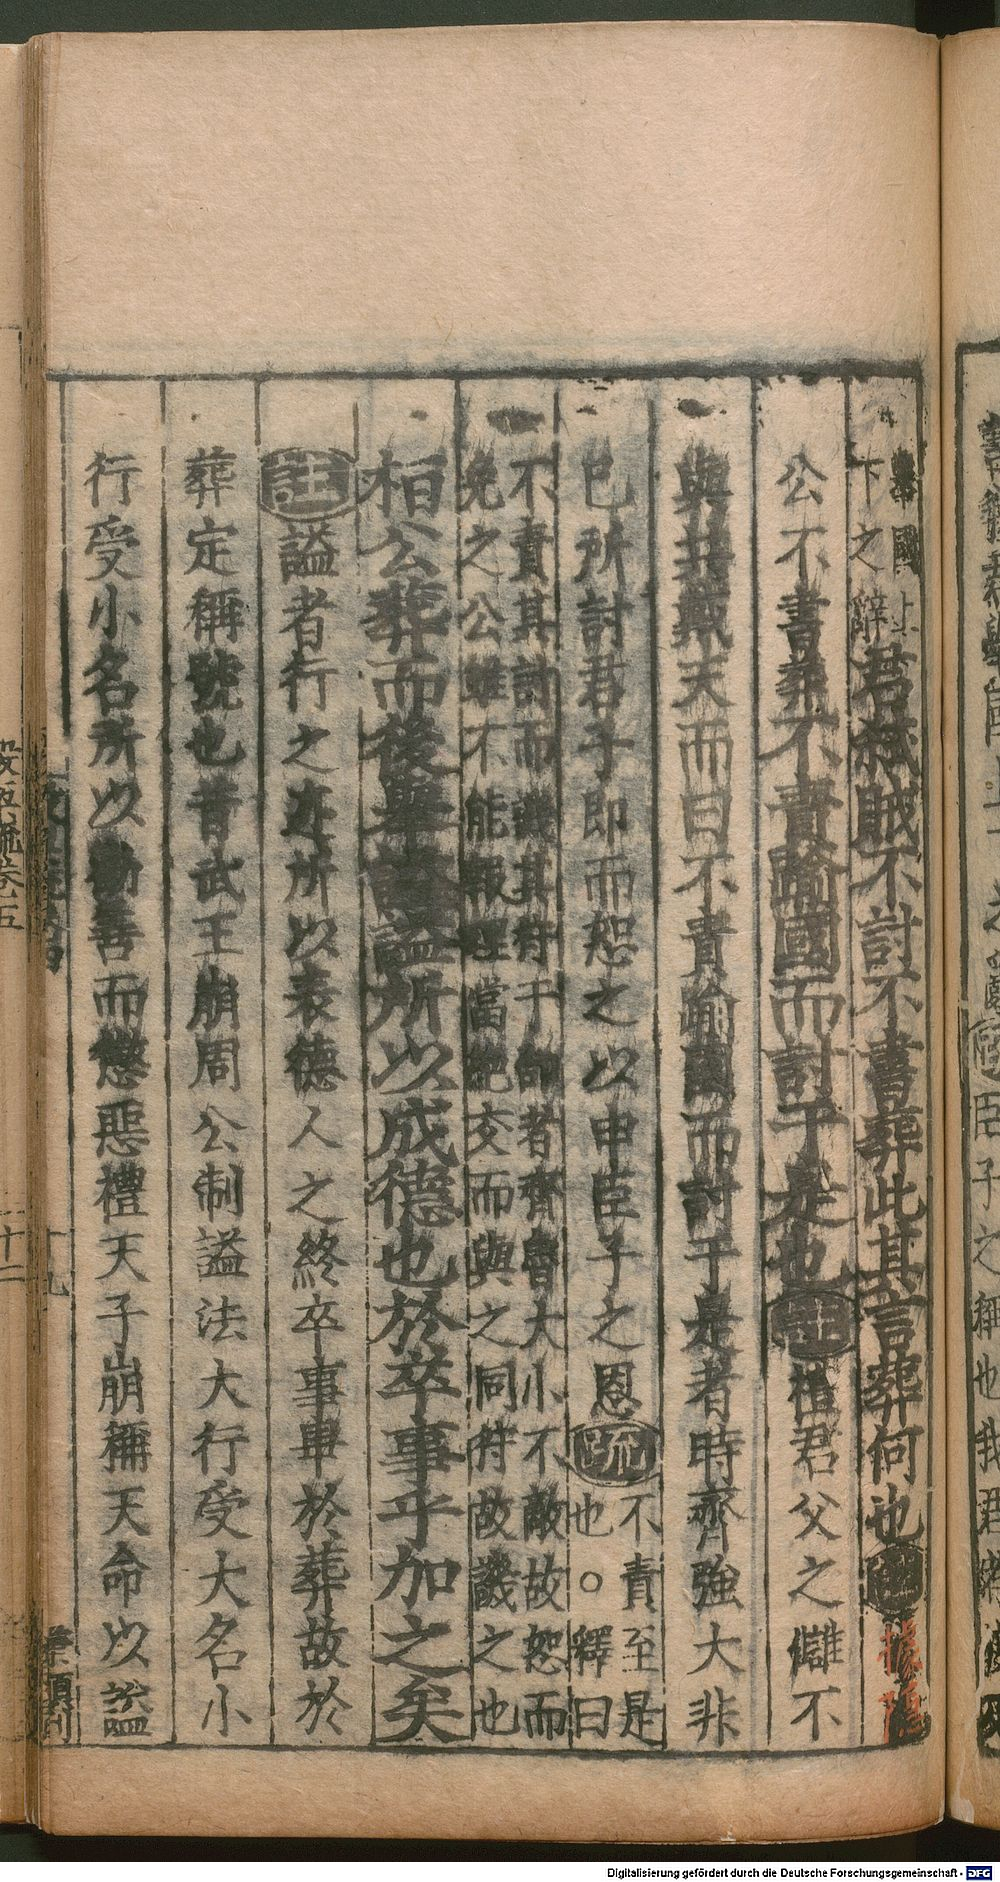 舉國上
下之辭君弑賊不討不書葬此其言葬何也註據隱
公不書葬不責踰國而討于是也註禮君父之讎不
與共戴天而曰不責踰國而討于是者時齊強大非
己所討君子即而恕之以申臣子之恩疏不責至是
也○釋曰
不責其討而譏其狩于郜者齊魯大小不敵故恕而
免之公雖不能報理當絶交而與之同狩故譏之也
桓公葬而後舉謚謚所以成德也於卒事乎加之矣
註謚者行之迹所以表德人之終卒事畢於葬故於
葬定稱號也昔武王崩周公制謚法大行受大名小
行受小名所以勸善而懲惡禮天子崩稱天命以謚
十九
葉頭刊
疏卷五
十二
臣子之稱也我君
Digitalisierung gefördert durch die Deutsche Forschungsgemeinschaft - DFG